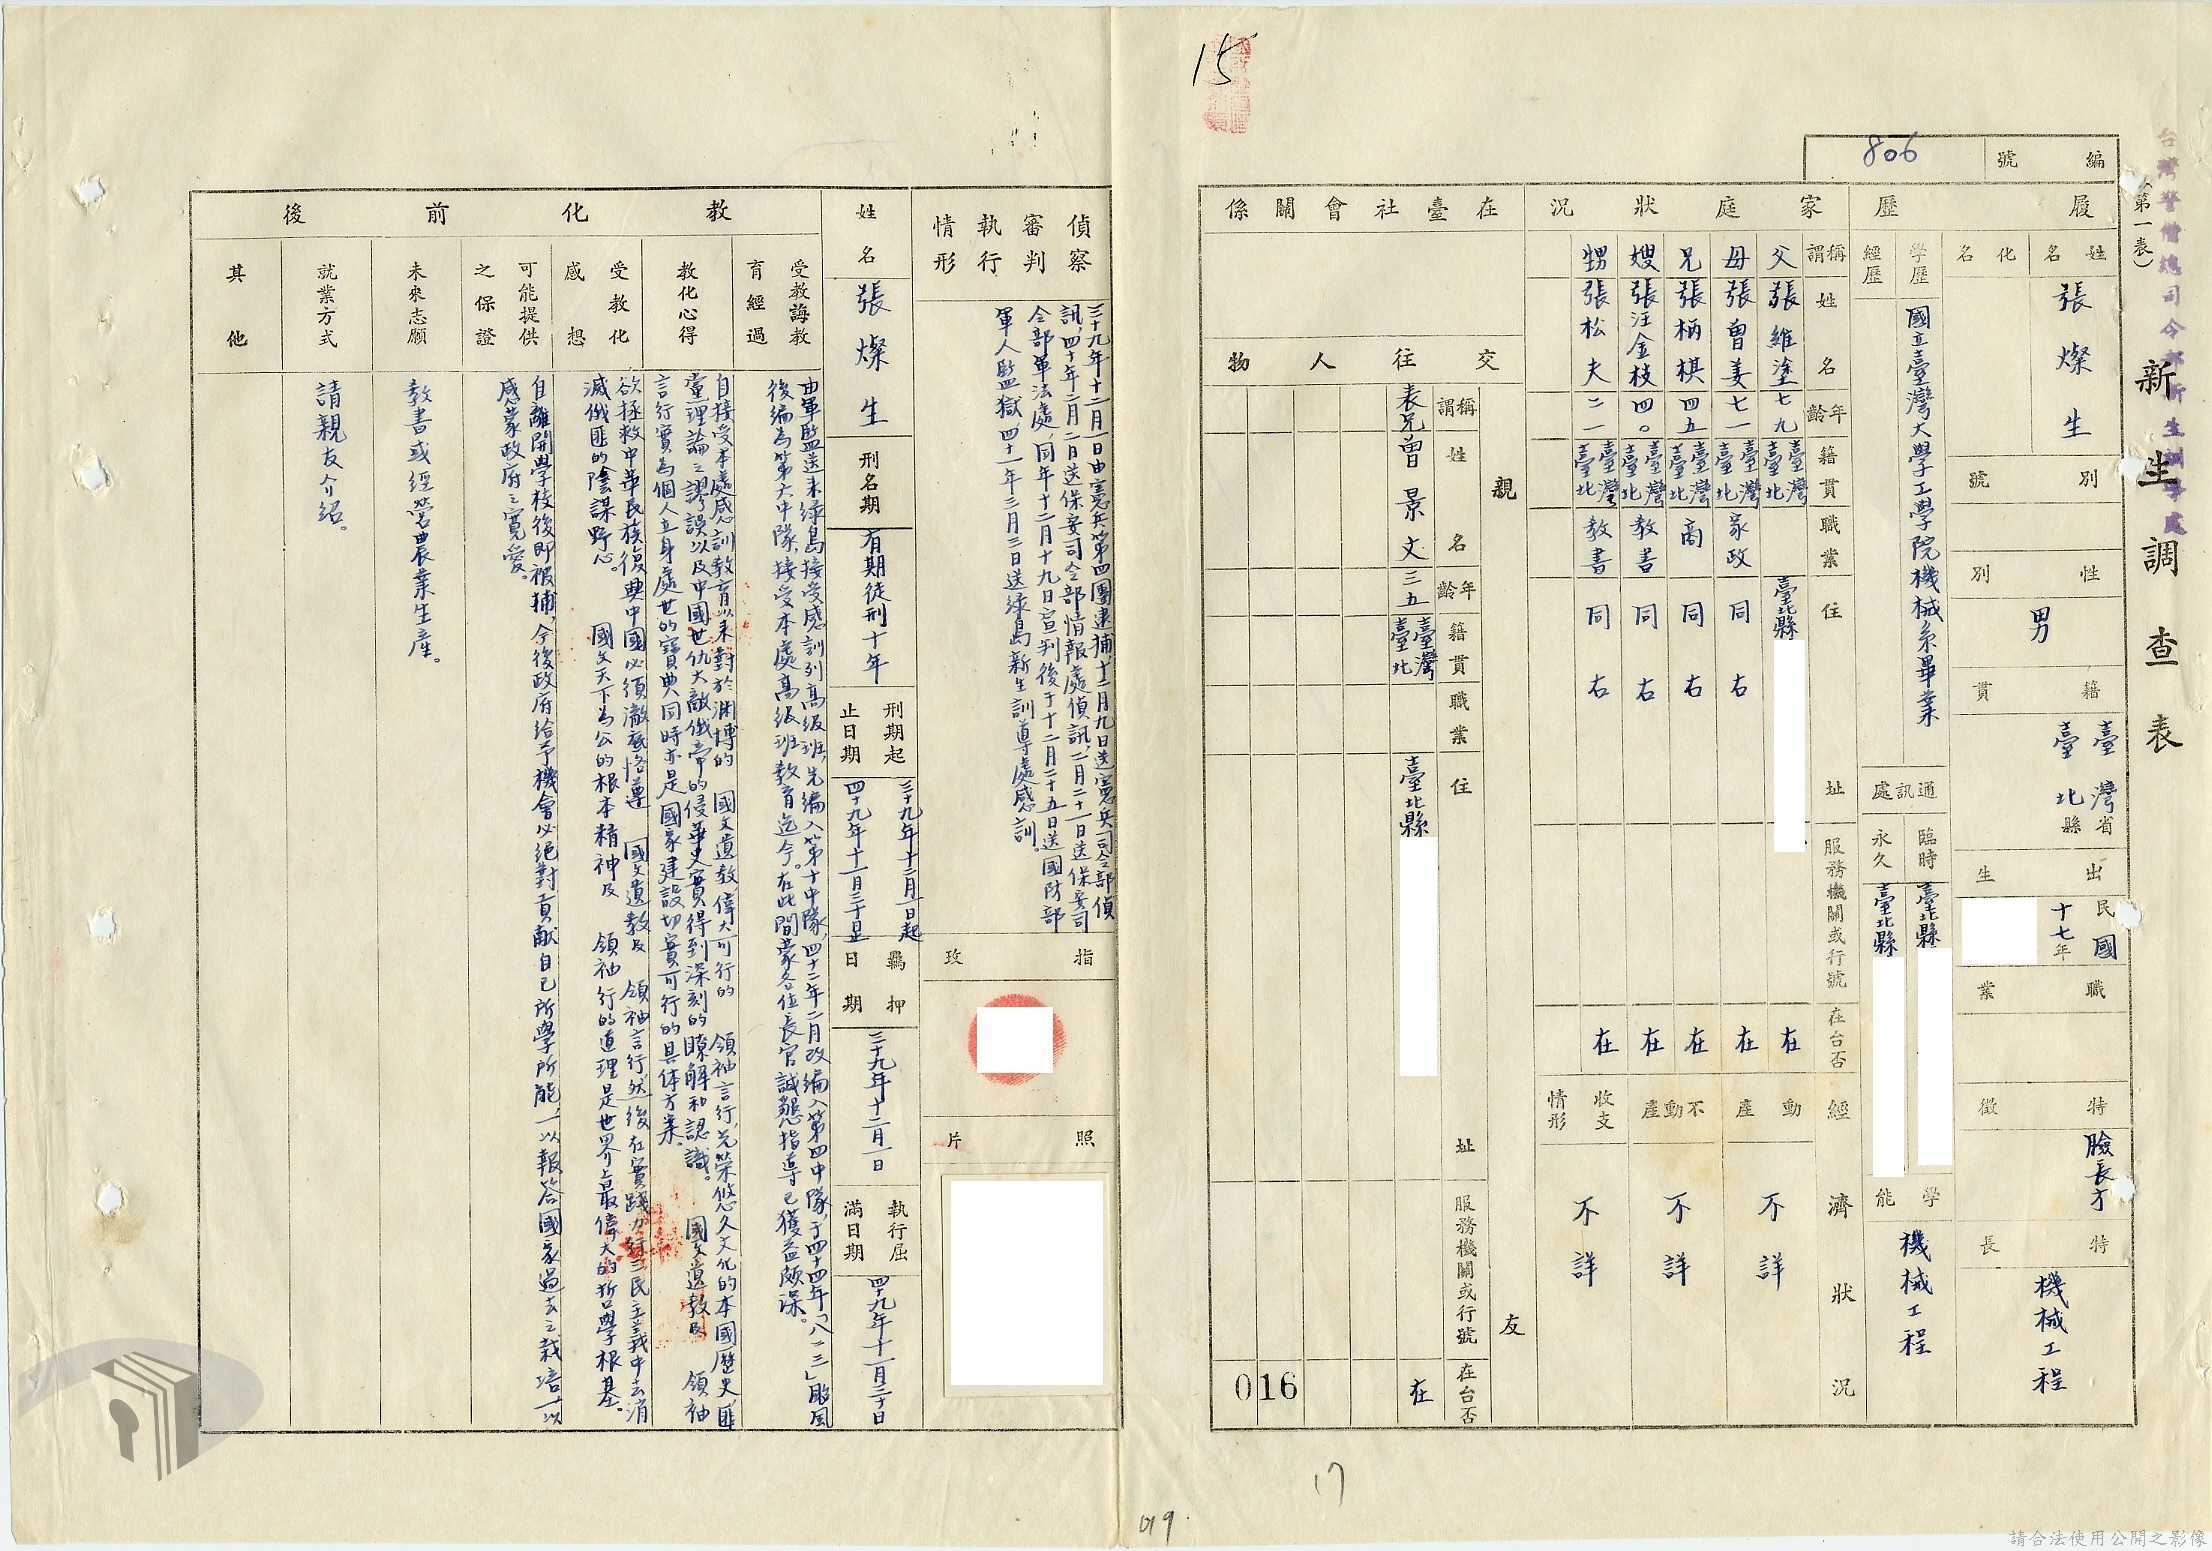 15
台灣警備總司令部新生訓導處
新生調查表
(第一表)
編號
806
履歷
姓名
張燦生
化名
別號
性別
男
籍貫
臺灣省
臺北縣
出生
民國
十七年
職業
特徵
臉長方
特長
機械工程
學歷
國立臺灣大學工學院機械系畢業
經歷
通訊處
臨時
臺北縣
永久
臺北縣
學能
機械工程
家庭狀況
稱謂
姓名
年齡
籍貫
職業
住址
服務機關或行號
在台否
父 張維塗 七九 臺灣臺北 臺北縣 在
母 張曾姜 七一 臺灣臺北 家政 同右 在
兄 張柄棋 四五 臺灣臺北 商 同右 在
嫂 張汪金枝 四〇 臺灣臺北 教書 同右 在
甥 張松夫 二一 臺灣臺北 教書 同右 在
經濟狀況
動產
不詳
不動產
不詳
收支情形
不詳
在臺社會關係
交往人物
親友
稱謂
姓名
年齡
籍貫
職業
住址
服務機關或行號
在台否
表兄 曾景文 三五 臺灣臺北 臺北縣 在
016
17
019.
偵察審判執行情形
三十九年十二月一日由憲兵第四團逮捕,十二月九日送憲兵司令部偵
訊,四十年二月二日送保安司令部情報處偵訊,二月二十一日送保安司
令部軍法處,同年十二月十九日宣判後于十二月二十五日送國防部
軍人監獄,四十一年三月三日送綠島新生訓導處感訓。
指攷
照片
姓名
張燦生
刑名期
有期徒刑十年
刑期起止日期
三十九年十二月一日起
四十九年十一月三十日止
羈押日期
三十九年十二月一日
執行屆滿日期
四十九年十一月三十日
教化前後
受教誨教育經過
由軍監送來綠島接受感訓列高級班,先編入第十中隊,四十二年二月改編入第四中隊,于四十四年「八二三」颱風
後編為第六中隊,接受本處高級班教育迄今。在此間蒙各位長官誠懇指導已獲益頗深。
教化心得
自接受本處感訓教育以來對於淵博的 國父遺教,偉大可行的 領袖言行,光榮悠久文化的本國歷史,匪
黨理論之謬誤以及中國世仇大敵俄帝的侵華史實得到深刻的瞭解和認識。 國父遺教及 領袖
言行實為個人立身處世的寶典同時亦是國家建設切實可行的具體方案。
受教化感想
欲拯救中華民族復興中國必須澈底恪遵 國父遺教及 領袖言行,然後在實踐力行三民主義中去消
滅俄匪的陰謀野心。 國父天下為公的根本精神及 領袖行的道理是世界上最偉大的哲學根基。
可能提供之保證
自離開學校後即被捕,今後政府給予機會必絕對貢献自己所學所能,一以報答國家過去之栽培,一以
感蒙政府之寬愛。
未來志願
教書或經營農業生產。
就業方式
請親友介紹。
其他
請合法使用公開之影像